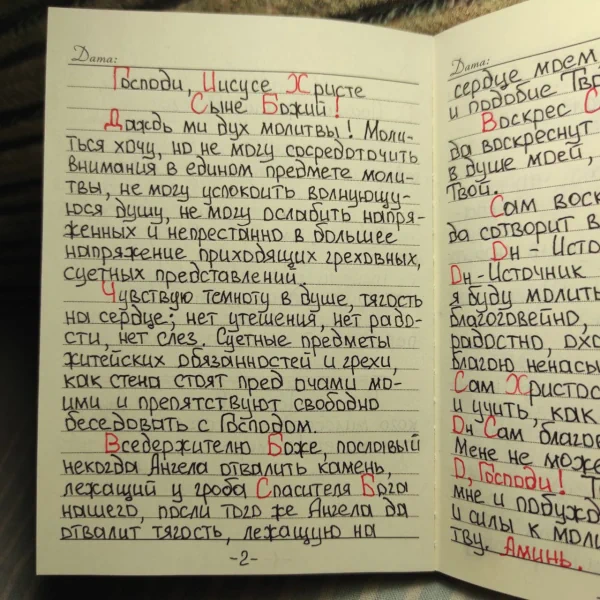 Дата:
Господи, Иисусе Христе
Сыне Божий!
Даждь ми дух молитвы! Моли-
ться хочу, но не могу сосредоточить
внимания в едином предмете моли-
твы, не могу успокоить волнующу-
юся душу, не могу ослабить напря-
женных и непрестанно в большее
напряжение приходящих греховных,
суетных представлений.
Чувствую темноту в душе, тягость
на сердце; нет утешения, нет радо-
сти, нет слез. Суетные предметы
житейских обязанностей и грехи,
как стена стоят пред очами мо-
ими и препятствуют свободно
беседовать с Господом.
Вседержителю Боже, пославый
некогда Ангела отвалить камень,
лежащий у гроба Спасителя Бога
нашего, посли того же Ангела да
отвалит тягость, лежащую на
-2-
Дата:
сердце моем,
и подобие Тво
Воскрес С
да воскреснут
в душе моей,
Твой.
Сам воск
да сотворит в
Он - Исто
Он - Источник
я буду молить
благоговейно,
радостно, охо
благою ненасы
Сам Христос
и учить, как
Он Сам благов
Мене не може
О, Господи! Т
мне и побужд
и силы к моли
тву. Аминь.